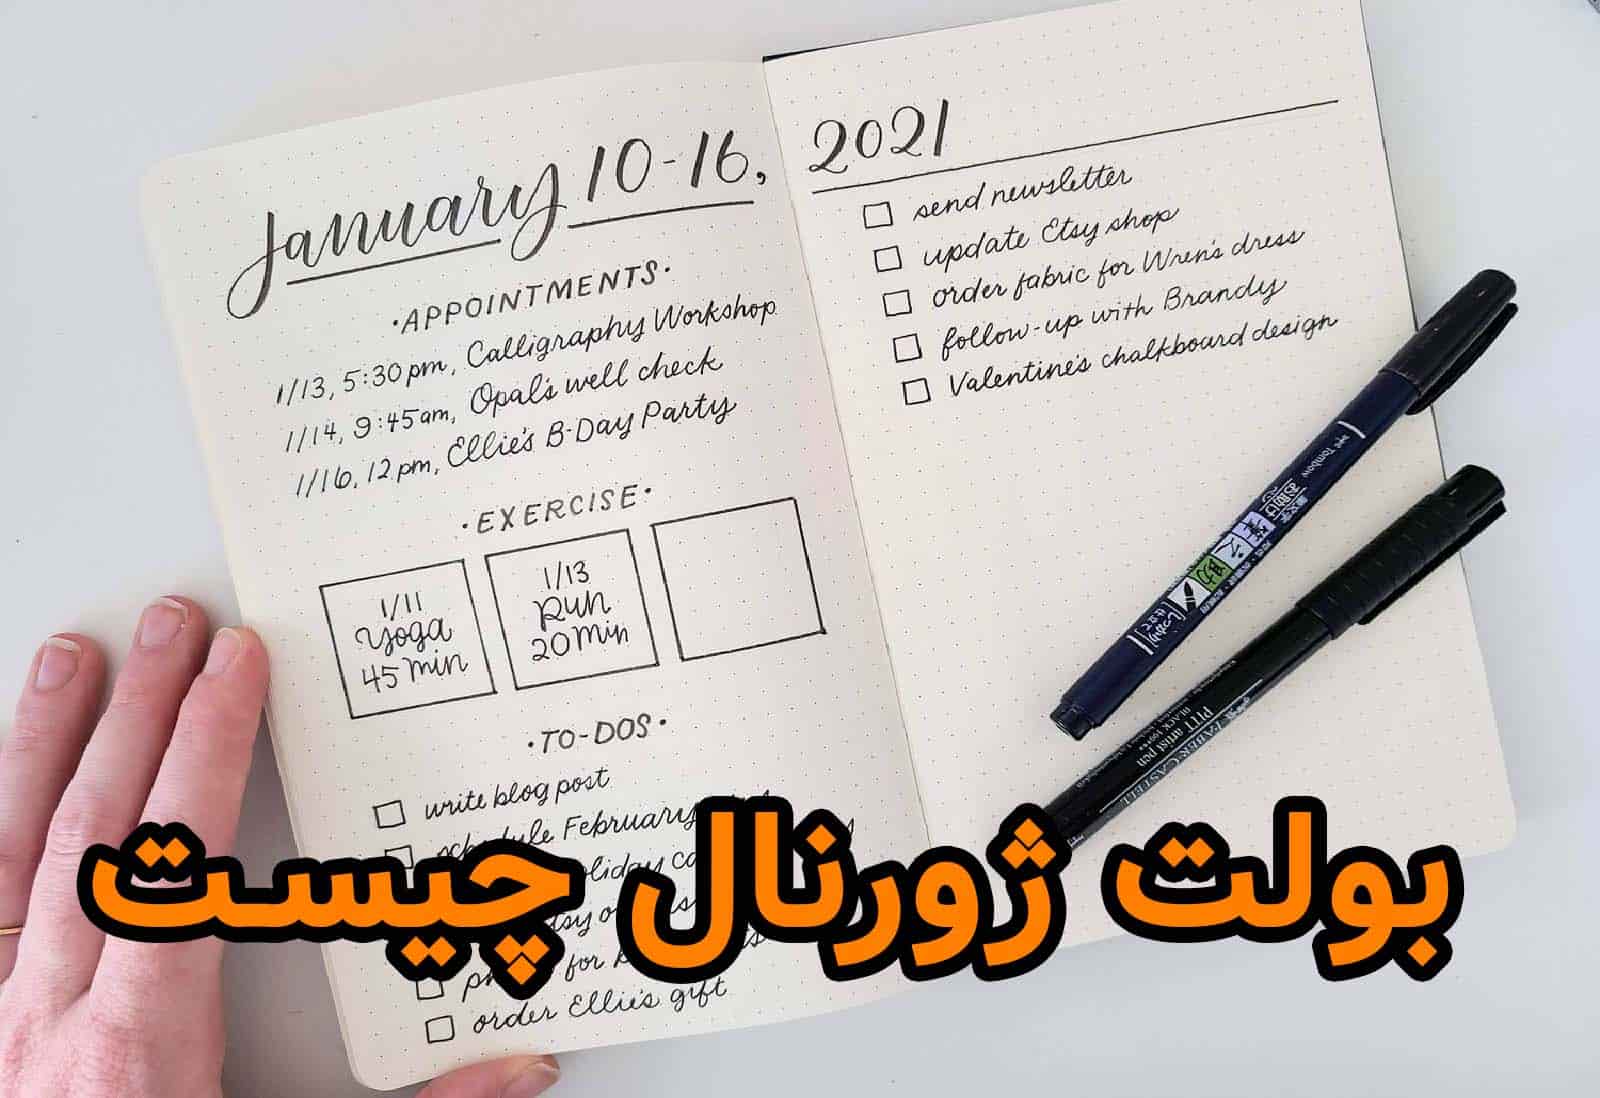 January 10-16,
·APPOINTMENTS·
1/13, 5:30 pm, Calligraphy Workshop
1/14, 9:45 am, Opal's well check
1/16, 12 pm, Ellie's B-Day Party
·EXERCISE·
1/11
Yoga
45 min
1/13
Run
20 min
·TO-DOS·
write blog post
schedule February
for
order Ellie's gift
2021
send newsletter
update Etsy shop
order fabric for Wren's dress
follow-up with Brandy
Valentine's chalkboard design
Tombow
FABER-CASTELL
PITT artist pen
بولت ژورنال چیست